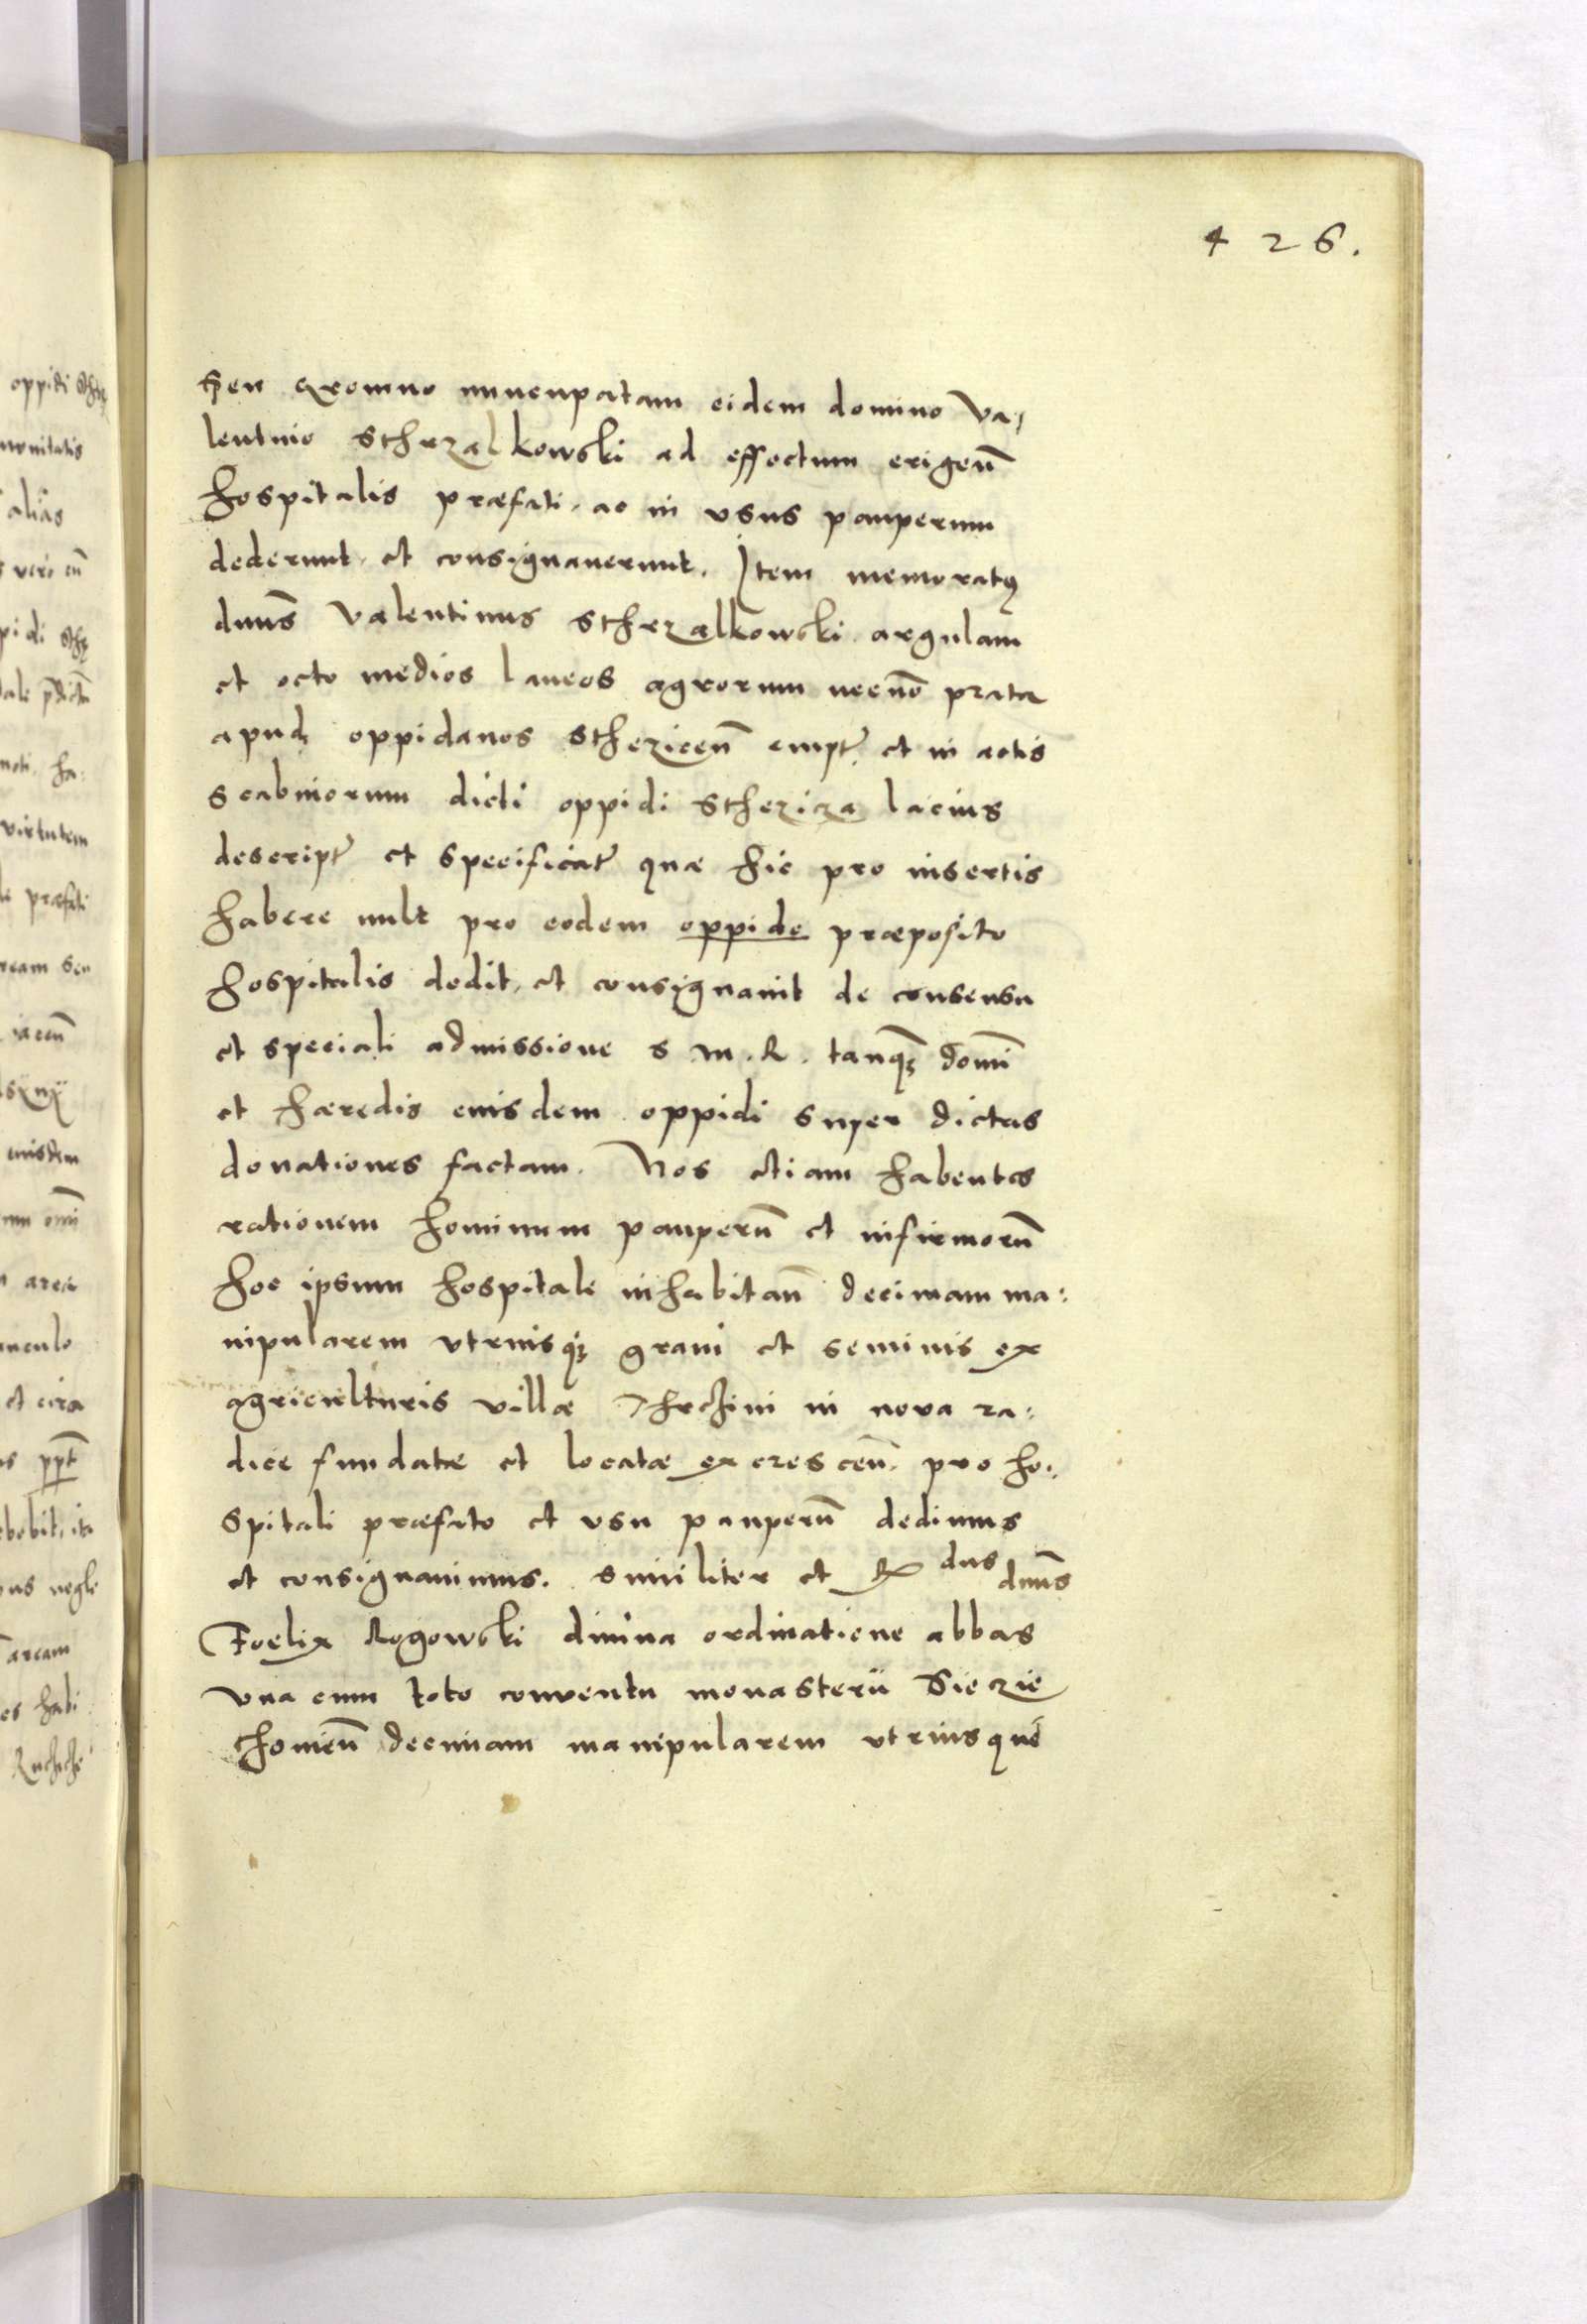 426.
seu Gromno nuncupatam eidem domino Va⸗
lentino Strzalkowski ad effectum erigeñ
hospitalis præfati, ac in vsus pauperum
dederunt, et consignauerunt. Item memoratq
dnũs Valentinus Sthrzalkowski argulam
et octo medios laneos agrorum necnõ prata
apud oppidanos Sthericeñ empt̃. et in actis
scabinorum dicti oppidi Stherziza lacius
descript̃ et specificat̃ quæ hic pro insertis
habere uult pro eodem oppido præposito
hospitalis dedit, et consignauit de consensu
et speciali admissione S. M. R. tanq̃ domĩ
et hæredis euisdem oppidi super dictas
donationes factam. Nos etiam habentes
rationem hominum pauperũ et infirmorũ
hoc ipsum hospitale inhabitañ decimam ma:
nipularem vtriusq; grani et seminis ex
agriculturis villæ in nova ra:
dice fundatæ et locatæ excresceñ. pro ho:
spitali præfato et vsu pauperũ dedimus
et consignauimus. Similiter et R dus dnũs
Foelix Rogowski diuina ordinatione abbas
vna cum toto conventu monasterii Siecie
chouieñ decimam manipularem vtriusque
oppidi
alias
præfati